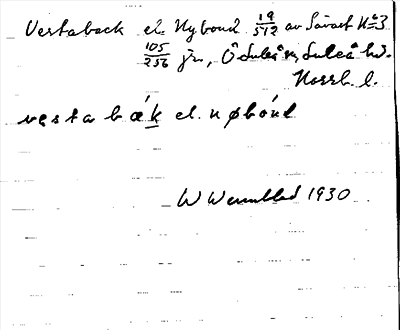 Vestaback el. Nybond 19/512 av Sävast No 3
105/256 jm, Ö. Luleå sn, Luleå hd.
Norrb. l.
vęsta bǽ̨k el. nybónd
W Wennblad 1930